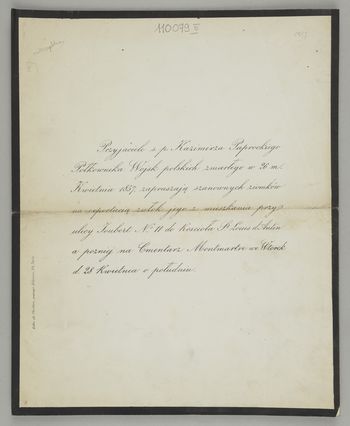 110079 V
Przyjaciele s. p. Kazimierza Paprockiego
Półkownika Wojsk polskich zmarłego w 26 m.
Kwietnia 1857. zapraszają szanownych ziomków
na exportacią zwłok jego z mieszkania przy
ulicy Joubert No 11 do kościoła St Louis d'Antin
a pozniej na Cmentarz Montmartre we Wtorek
d. 28 Kwietnia o południu.